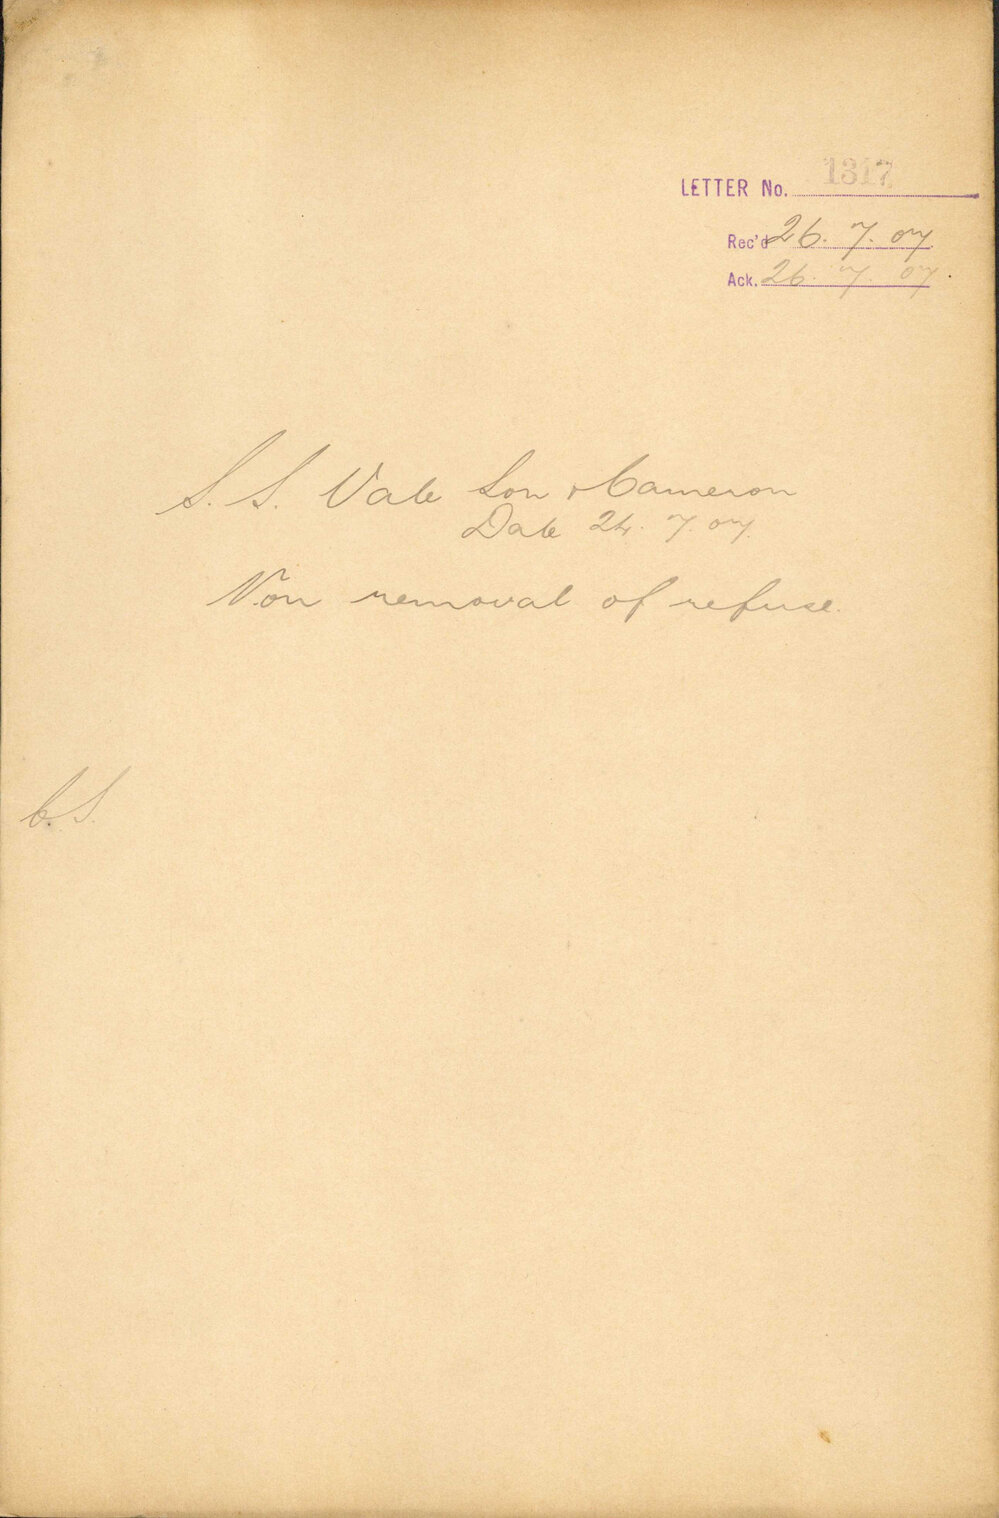 LETTER No. 1317
Rec'd 26.7.07.
Ack. 26.7.07.
S. S. Vale Son & Cameron
Date 24.7.07.
Non removal of refuse.
C.S.